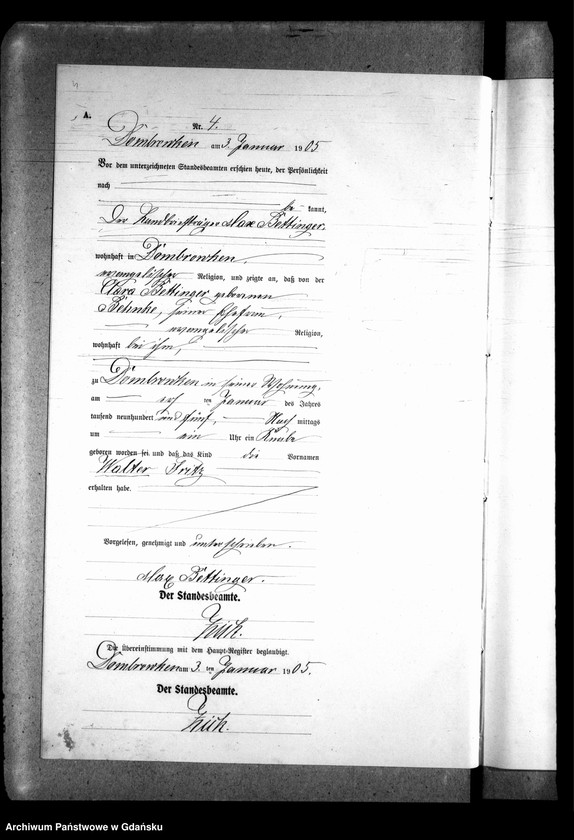 A.
Nr. 4.
Dombrowken am 3. Januar 1905
Vor dem unterzeichneten Standesbeamten erschien heute, der Persönlichkeit
nach
be kannt,
Der Landbriefträger Max Böttinger,
wohnhaft in Dombrowken,
evangelischer Religion, und zeigte an, daß von der
Clara Böttinger geborenen
Behnke, seiner Ehefrau,
evangelischer Religion,
wohnhaft bei ihm,
zu Dombrowken in seiner Wohnung,
am ten Januar des Jahres
tausend neunhundert und fünf, Nach mittags
um ein Uhr ein Knabe
geboren worden sei und daß das Kind die Vornamen
Walter Fritz
erhalten habe.
Vorgelesen, genehmigt und unterschrieben.
Max Böttinger.
Der Standesbeamte.
Die Übereinstimmung mit dem Haupt-Register beglaubigt.
Dombrowken am 3. ten Januar 1905.
Der Standesbeamte.
Archiwum Państwowe w Gdańsku